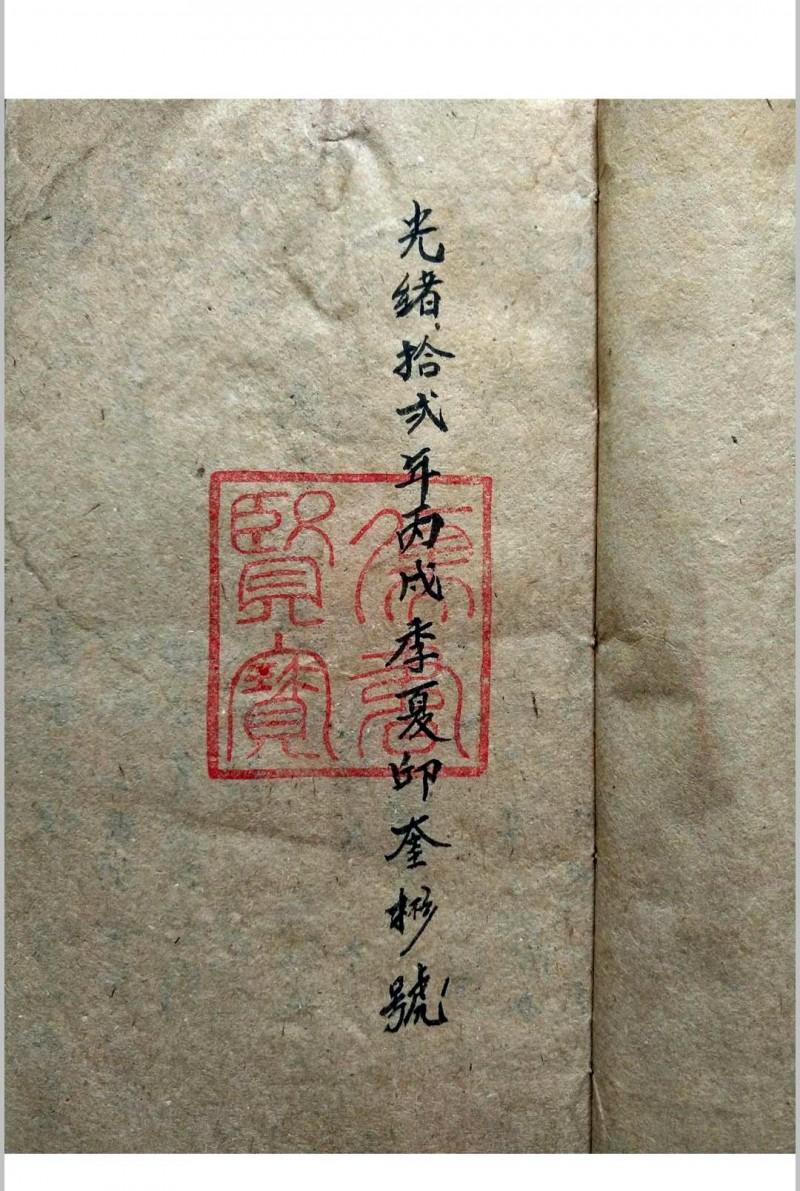 光緒拾弍年丙戌季夏卯奎彬號
賢寶